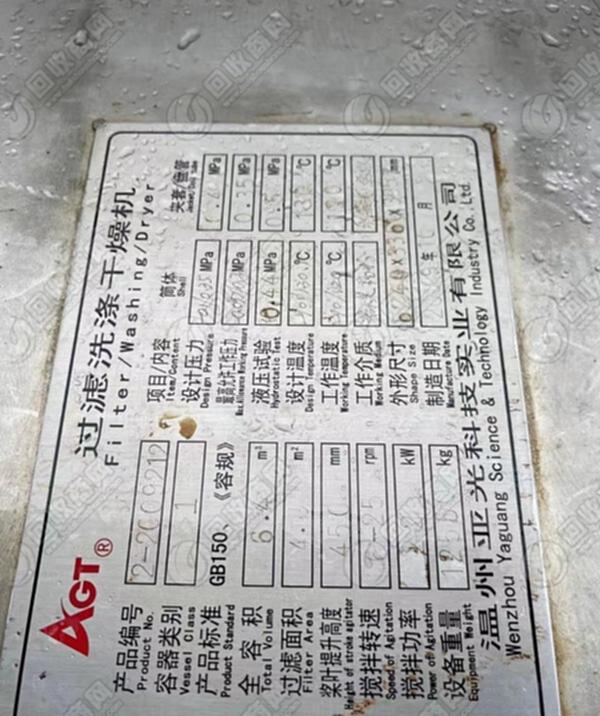 AGT®
过滤洗涤干燥机
Filter/Washing/Dryer
产品编号 2-2009212
Product No.
容器类别 1
Vessel Class
产品标准 GB150、《容规》
Product Standard
全容积 6.4 m³
Total Volume
过滤面积 4. m²
Filter Area
桨叶提升高度 450 mm
Height of stroke agitator
搅拌转速 rpm
Speed of Agitation
搅拌功率 kW
Power of Agitation
设备重量 kg
Equipment Weight
项目/内容 筒体 夹套/盘管
Item/Content Shell
设计压力 MPa MPa
Design Pressure
最高允许工作压力 MPa MPa
Max.Allowance Working Pressure
液压试验 0.44 MPa MPa
Hydrostatic Test
设计温度 ℃
Design Temperature
工作温度 ℃
Working Temperature
工作介质
Working Medium
外形尺寸 mm
Shape Size
制造日期 年 月
Manufacture Date
温州亚光科技实业有限公司
Wenzhou Yaguang Science & Technology Industry Co. Ltd.
回收商网